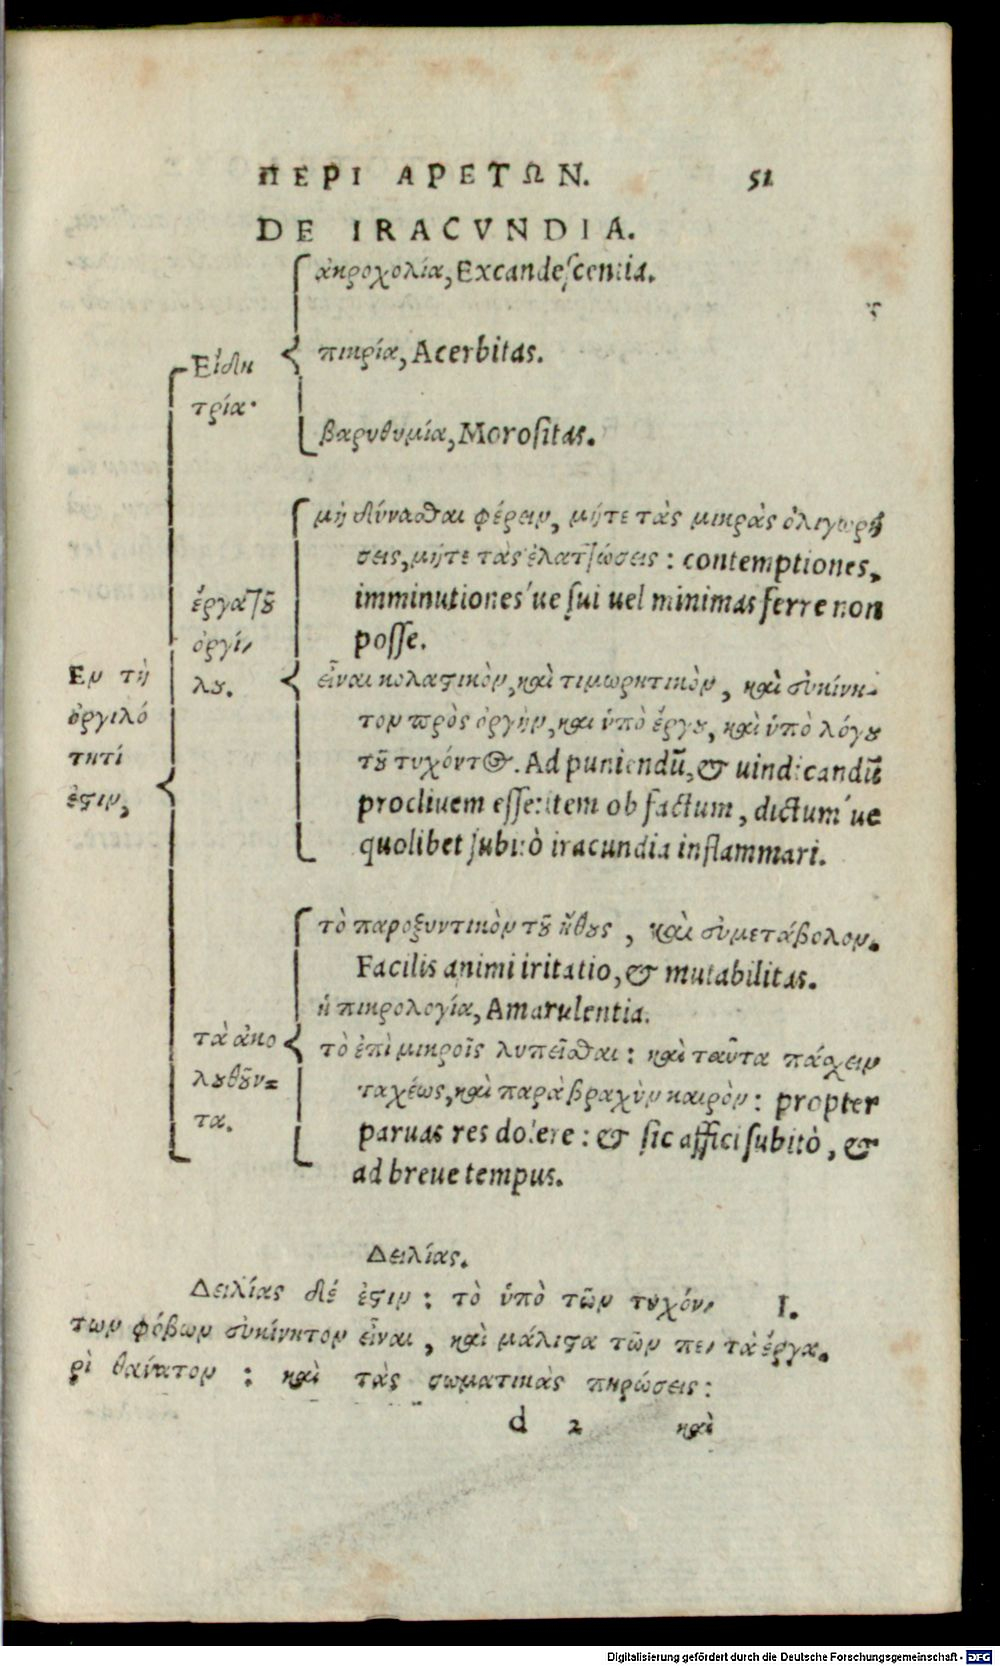 ΠΕΡΙ ΑΡΕΤΩΝ. 51
DE IRACVNDIA.
ἀκροχολία, Excandescentia.
πικρία, Acerbitas.
Εἴδη
τρία·
βαρυθυμία, Morositas.
μὴ δύνασθαι φέρειν, μήτε τὰς μικρὰς ὀλιγωρή
σεις, μήτε τὰς ἐλαττώσεις : contemptiones,
ἔργα τοῦ
imminutiones´ue sui uel minimas ferre non
ὀργί,
posse.
Εν τῇ
λου.
εἶναι κολαστικὸν, καὶ τιμωρητικὸν, καὶ εὐκίνη-
ὀργιλό
τον πρὸς ὀργὴν, καὶ ὑπὸ ἔργου, καὶ ὑπὸ λόγου
τητί
τοῦ τυχόντος. Ad puniendũ, & uindicandũ
ἐστιν,
procliuem esse: item ob factum, dictum´ue
quolibet subitò iracundia inflammari.
τὸ παροξυντικὸν τοῦ ἤθους, καὶ εὐμετάβολον.
Facilis animi iritatio, & mutabilitas.
ἡ πικρολογία, Amarulentia.
τὰ ἀκο
τὸ ἐπὶ μικροῖς λυπεῖσθαι : καὶ ταῦτα πάσχειν
λουθοῦν=
ταχέως, καὶ παρὰ βραχὺν καιρὸν : propter
τα.
paruas res dolere : & sic affici subitò, &
ad breue tempus.
Δειλίας.
Δειλίας δέ ἐστιν : τὸ ὑπὸ τῶν τυχόν, I.
των φόβων εὐκίνητον εἶναι, καὶ μάλιστα τῶν πε, τὰ ἔργα.
ρὶ θάνατον : καὶ τὰς σωματικὰς πηρώσεις :
d 2 καὶ
Digitalisierung gefördert durch die Deutsche Forschungsgemeinschaft - DFG